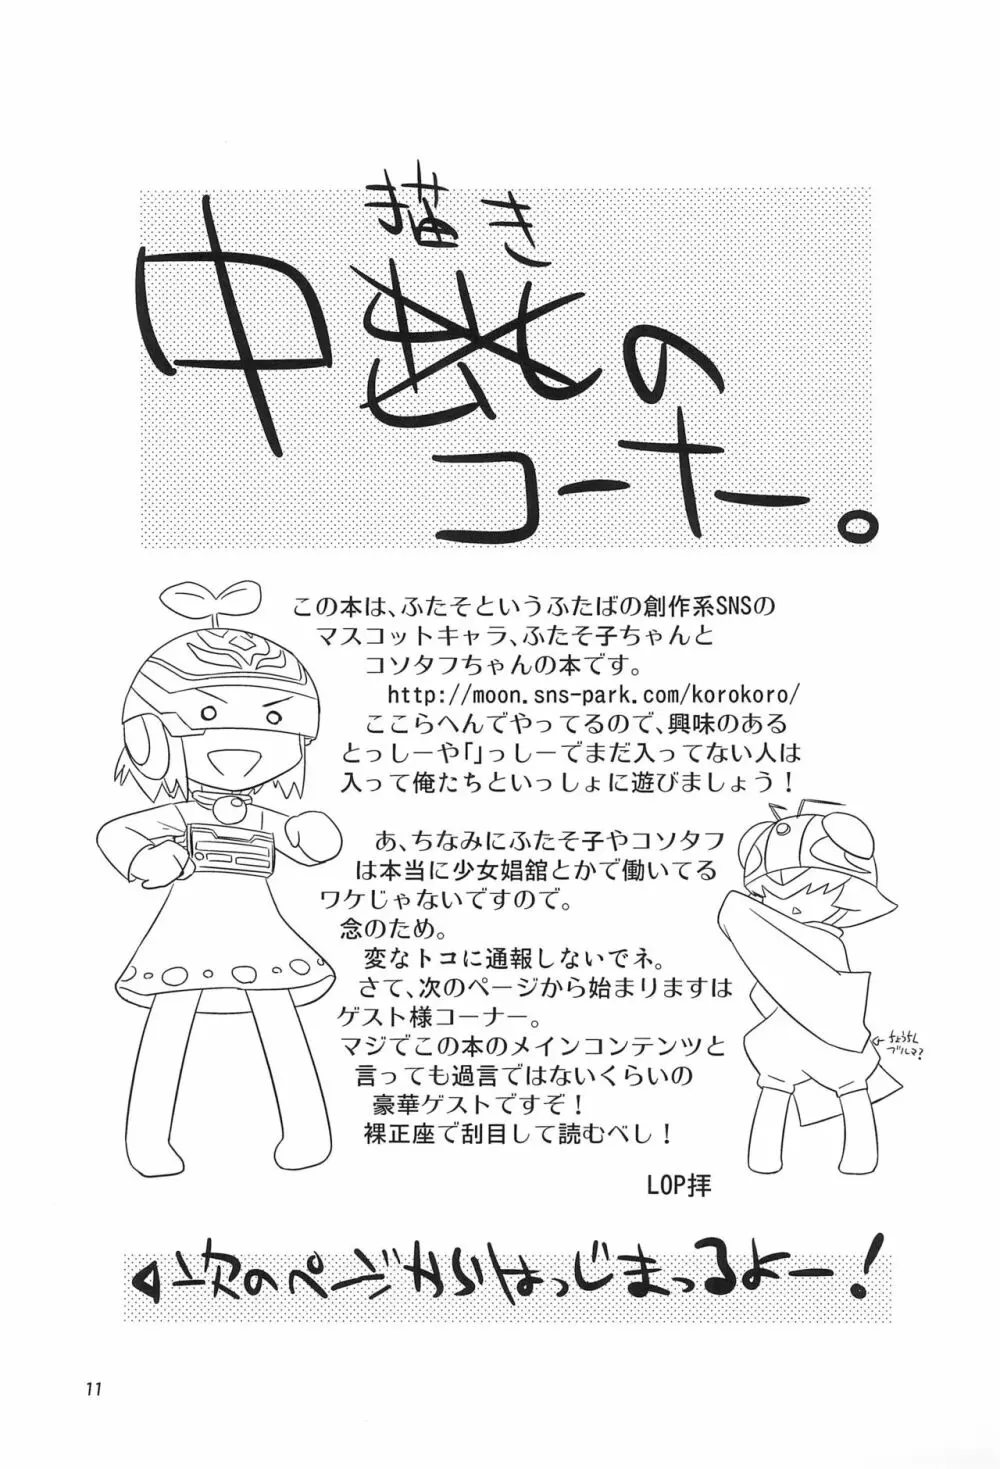 描き
中書きの
コーナー。
この本は、ふたそというふたばの創作系SNSの
マスコットキャラ、ふたそ子ちゃんと
コソタフちゃんの本です。
http://moon.sns-park.com/korokoro/
ここらへんでやってるので、興味のある
とっしーや「」っしーでまだ入ってない人は
入って俺たちといっしょに遊びましょう！
あ、ちなみにふたそ子やコソタフ
は本当に少女娼舘とかで働いてる
ワケじゃないですので。
念のため。
変なトコに通報しないでネ。
さて、次のページから始まりますは
ゲスト様コーナー。
マジでこの本のメインコンテンツと
言っても過言ではないくらいの
豪華ゲストですぞ！
裸正座で刮目して読むべし！
LOP拝
←ちょうちん
ブルマ?
次のページからはっじまっるよー！
11